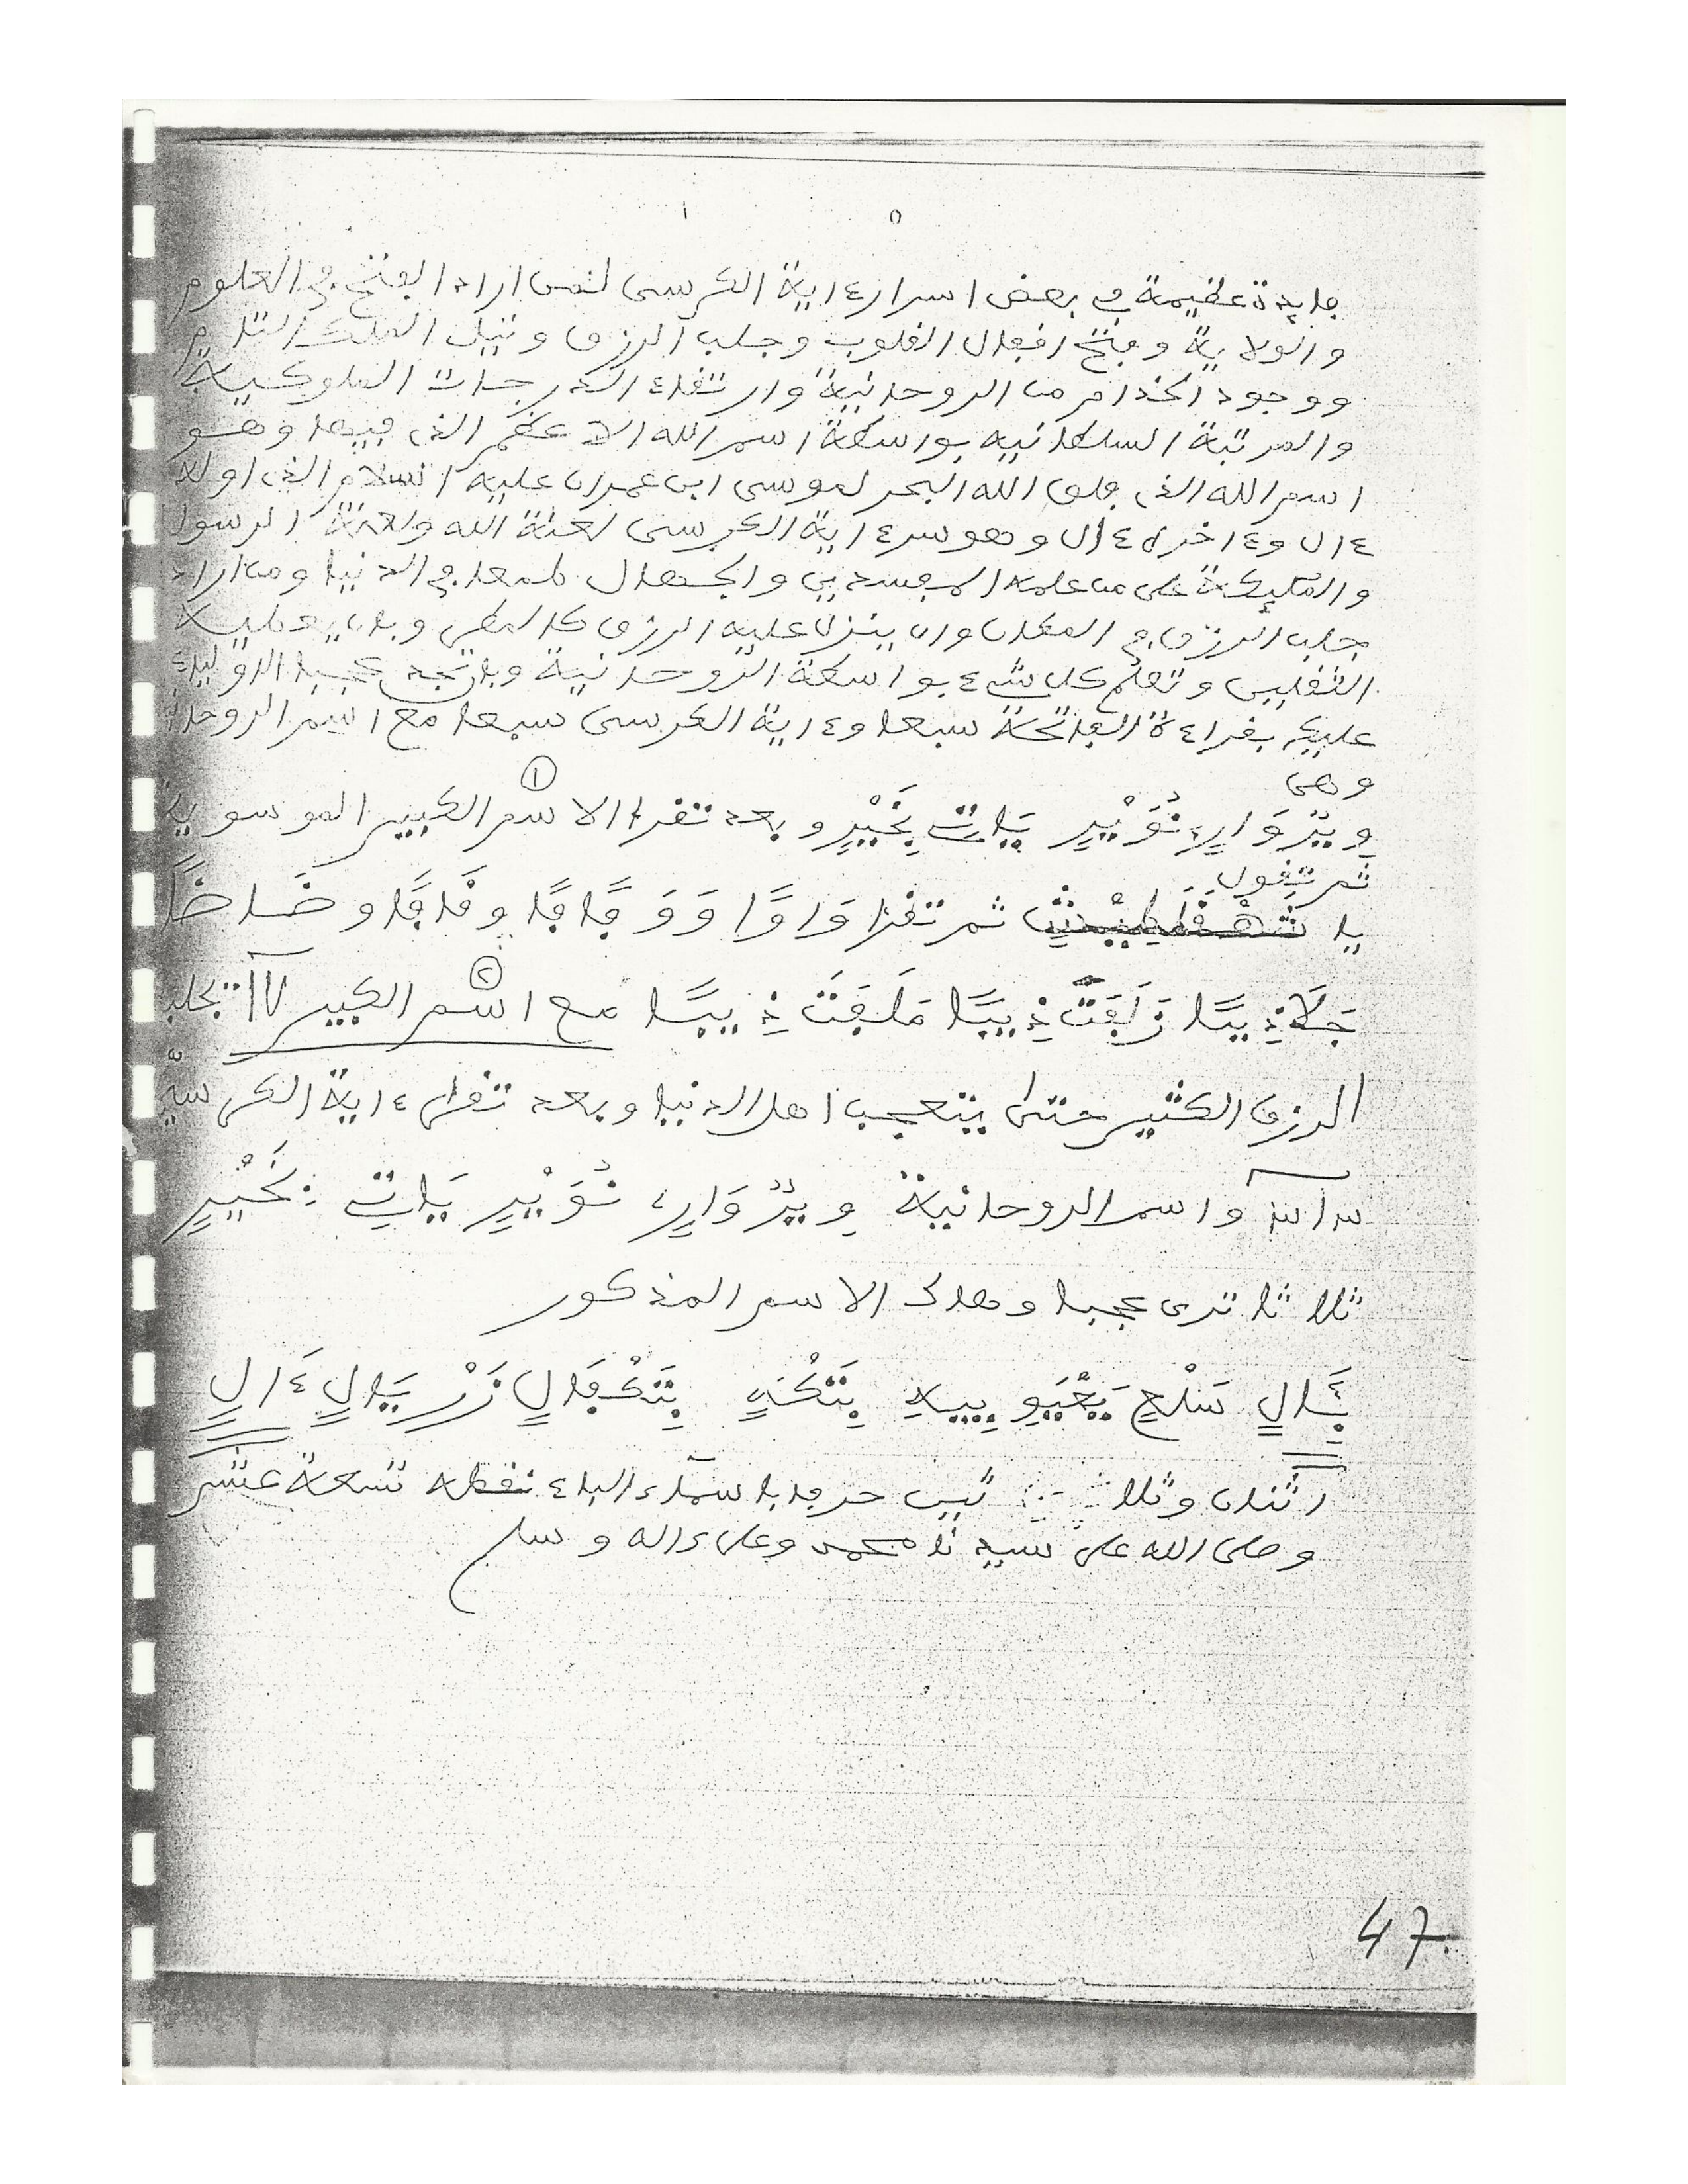 فايدة عظيمة في بعض اسرار ءاية الكرسى لمن اراد الفتح في العلوم
والولاية وفتح افعال القلوب وجلب الرزق ونيل الملك التام
ووجود الخدام من الروحانية وارتقاء الدرجات الملوكية
والمرتبة السلطانيه بواسطة اسم الله الاعظم الذى فيها وهو
اسم الله الذى فلق الله البحر لموسى ابن عمران عليه السلام الذى اوله
ءال وءاخره ءال وهو سر ءاية الكرسى لعنة الله ولعنة الرسول
والمليكة على من علمه المفسدين والجهال طمعا في الدنيا ومن اراد
جلب الرزق في المكان وان ينزل عليه الرزق كالمطر وبان يعطيه
الثقلين وتعلم كل شىء بواسطة الروحانية وبان تجد عجبا
عليك بقراءة الفاتحة سبعا وءاية الكرسى سبعا مع اسم الروحانية
وهى
وِيْرْوَارٍ نُوَيْرٍ يَاتٍ بِخَيْرٍ وبعد تقرا الاسم الكبير الموسوية ①
ثم تقول
يا ثم تقرا وَاوًا وَوَ فَافًا وقَاقًا وضَاضًا
جَلَاذِيبًا زَلَفَتَ ذِيبًا مَلَفَتَ ذِيبًا مع اسم الكبير ② ١٧ تجلب
الرزق الكثير حتى يتعجب اهل الدنيا وبعد تقرا ءاية الكرسية
واسم الروحانية وِيْرْوَارٍ نُوَيْرٍ يَاتٍ بِخَيْرٍ
ثلاثا ترى عجبا وهاك الاسم المذكور
سَلْعٍ زَرْيَالٍ ءَالٍ
اثنان وثلاثين حرفا باسماء الباء نقطه تسعة عشر
وصلى الله على سيدنا محمد وعلى ءاله وسلم
47